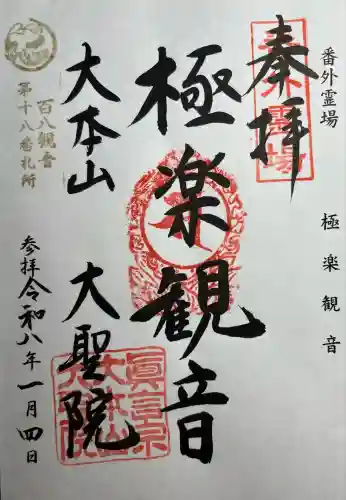 番外霊場　極楽観音
奉拝
番外霊場
極楽観音
大本山　大聖院
百八観音
第十八番札所
参拝令和八年一月四日